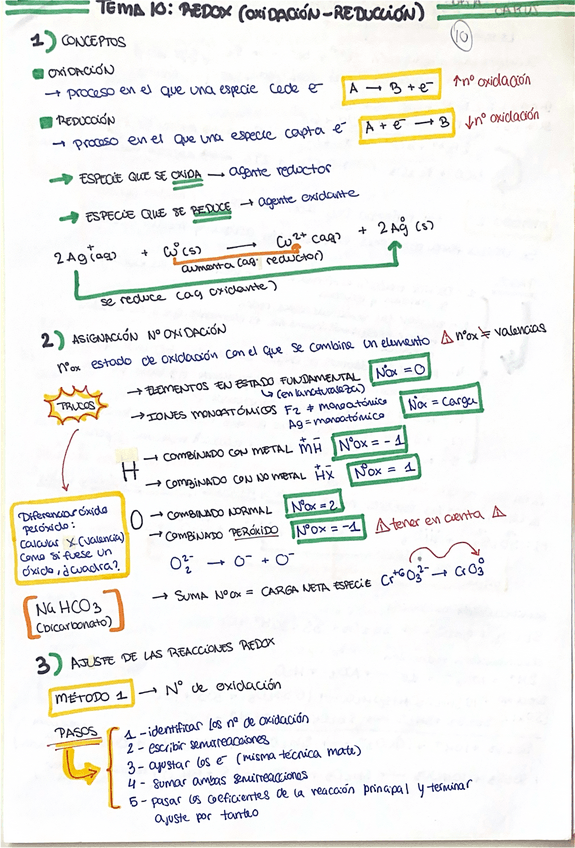 TEMA 10: REDOX (OXIDACIÓN-REDUCCIÓN)
10
1) CONCEPTOS
OXIDACIÓN
→ proceso en el que una especie cede e⁻ A → B + e⁻ ↑nº oxidación
REDUCCIÓN
→ proceso en el que una especie capta e⁻ A + e⁻ → B ↓nº oxidación
→ ESPECIE QUE SE OXIDA → agente reductor
→ ESPECIE QUE SE REDUCE → agente oxidante
2Ag⁺(aq) + Cu⁰(s) → Cu²⁺(aq) + 2Ag⁰(s)
aumenta (ag. reductor)
se reduce (ag oxidante)
2) ASIGNACIÓN Nº OXIDACIÓN
nºox estado de oxidación con el que se combina un elemento ⚠ nºox ≠ valencias
TRUCOS
→ ELEMENTOS EN ESTADO FUNDAMENTAL Nºox = 0
↳ (en la naturaleza)
→ IONES MONOATÓMICOS F₂ ≠ monoatómico Nºox = Carga
Ag = monoatómico
H → COMBINADO CON METAL M⁺H⁻ NºOX = -1
→ COMBINADO CON NO METAL H⁺X⁻ NºOX = 1
O → COMBINADO NORMAL NºOX = 2
→ COMBINADO PERÓXIDO NºOX = -1 ⚠ tener en cuenta ⚠
O₂²⁻ → O⁻ + O⁻
Diferenciar óxido
peróxido:
Calcular X (valencia)
como si fuese un
óxido, ¿cuadra?
→ SUMA NºOX = CARGA NETA ESPECIE Cr⁺⁶O₃²⁻ → CrO₃⁰
[NaHCO₃
(bicarbonato)]
3) AJUSTE DE LAS REACCIONES REDOX
MÉTODO 1 → Nº de oxidación
PASOS
1 - identificar los nº de oxidación
2 - escribir semirreacciones
3 - ajustar los e⁻ (misma técnica mate)
4 - sumar ambas semirreacciones
5 - pasar los coeficientes de la reacción principal y terminar
ajuste por tanteo